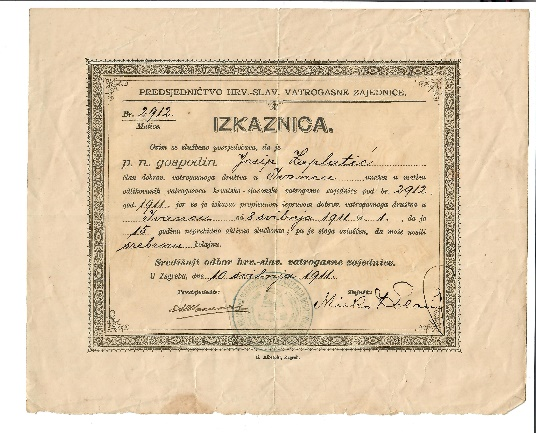 PREDSJEDNIČTVO HRV.-SLAV. VATROGASNE ZAJEDNICE.
Br. 2912.
Matice.
IZKAZNICA.
Ovim se službeno posvjedočava, da je
p. n. gospodin Josip
član dobrov. vatrogasnoga društva u Ivancu unešen u maticu
odlikovanih vatrogasaca hrvatsko-slavonske vatrogasne zajednice pod br. 2912
god. 1911. jer se je iskazao propisanom izpravom dobrov. vatrogasnog društva u
Ivancu od 8 svibnja 1911 br. 1., da je
15 godina neprekidno aktivno službovao, pa je stoga ovlašten, da može nositi
srebrnu kolajnu.
Središnji odbor hrv.-slav. vatrogasne zajednice.
U Zagrebu, dne 10 1911.
Predsjednik:
Tajnik:
Mirko
Zagreb.